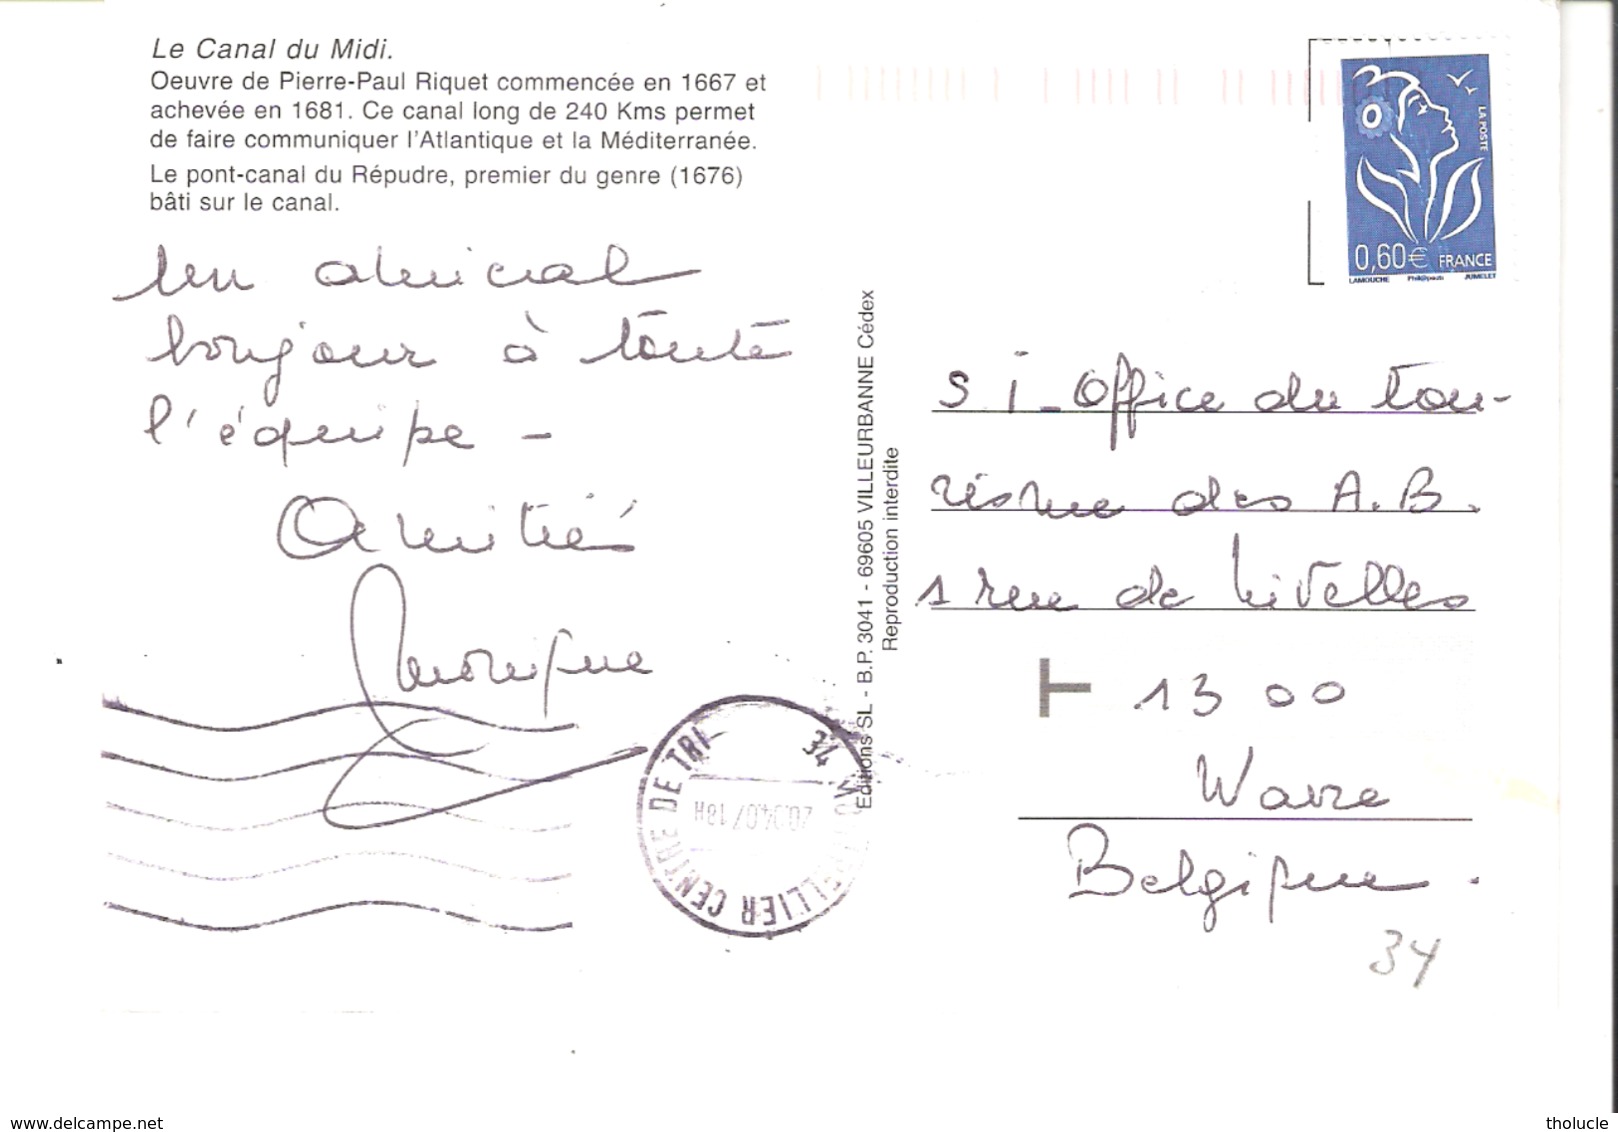 Le Canal du Midi.
Oeuvre de Pierre-Paul Riquet commencée en 1667 et
achevée en 1681. Ce canal long de 240 Kms permet
de faire communiquer l'Atlantique et la Méditerranée.
Le pont-canal du Répudre, premier du genre (1676)
bâti sur le canal.
Un amical
bonjour à toute
l'équipe -
Amitiés
Monique
MONTPELLIER CENTRE DE TRI
34
18H
Editions SL - B.P. 3041 - 69605 VILLEURBANNE Cédex
Reproduction interdite
LA POSTE
0,60€ FRANCE
LAMOUCHE Phil@poste JUMELET
S i - Office du Tou-
risme des A.B.
1 rue de Nivelles
T 13 00
Wavre
Belgique.
34
www.delcampe.net
tholucle